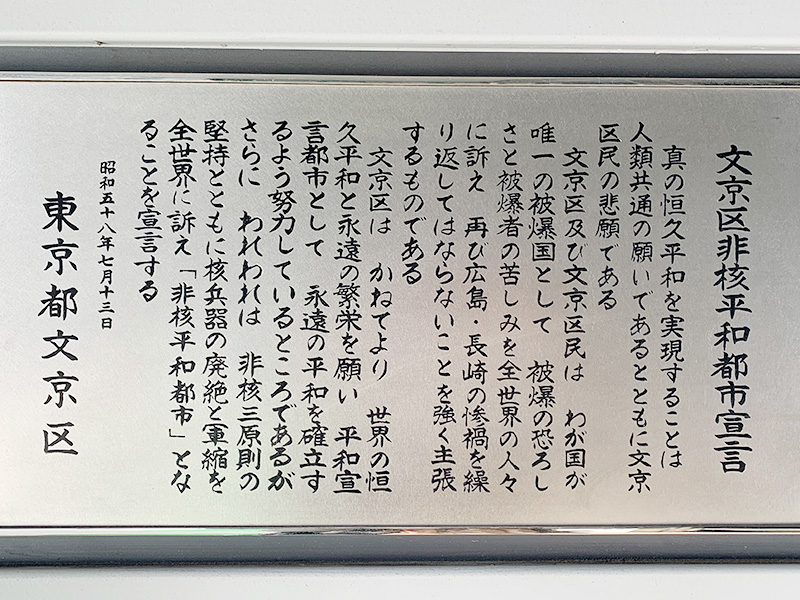 文京区非核平和都市宣言
真の恒久平和を実現することは
人類共通の願いであるとともに文京
区民の悲願である
文京区及び文京区民は わが国が
唯一の被爆国として 被爆の恐ろし
さと被爆者の苦しみを全世界の人々
に訴え 再び広島・長崎の惨禍を繰
り返してはならないことを強く主張
するものである
文京区は かねてより 世界の恒
久平和と永遠の繁栄を願い 平和宣
言都市として 永遠の平和を確立す
るよう努力しているところであるが
さらに われわれは 非核三原則の
堅持とともに核兵器の廃絶と軍縮を
全世界に訴え「非核平和都市」とな
ることを宣言する
昭和五十八年七月十三日
東京都文京区